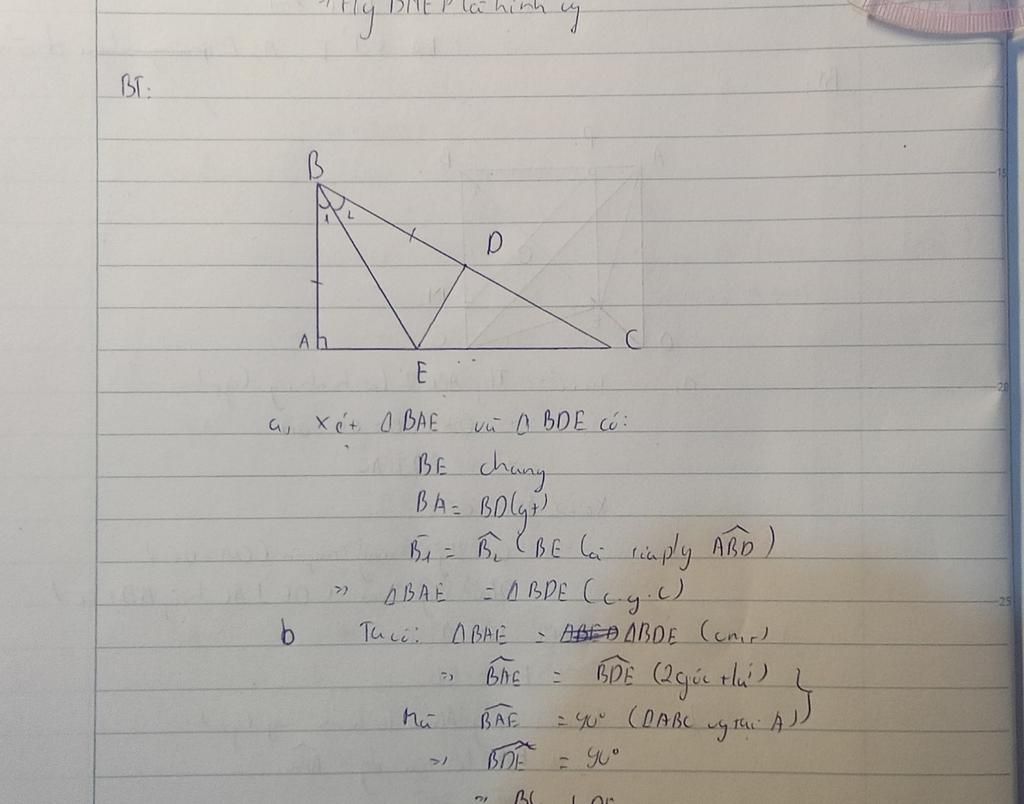 Hg BMEP là hình cg
BT:
B
1 2
D
A
E
C
a, xét Δ BAE và Δ BDE có:
BE chung
BA = BD (gt)
B̂1 = B̂2 (BE là tia pg ABD)
=> Δ BAE = Δ BDE (c.g.c)
b Ta có: Δ BAE = Δ BDE (cmt)
=> BAE = BDE (2 góc tư)
Mà BAE = 90° (Δ ABC vg tại A)
=> BDE = 90°
=> BC ⊥ DE